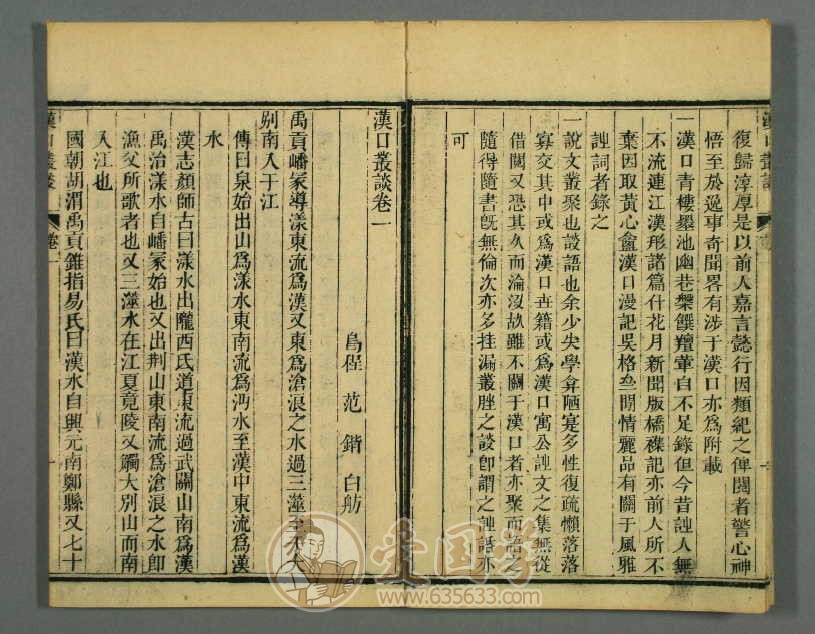 漢口叢談
復歸淳厚是以前人嘉言懿行因類紀之俾閱者警心神
悟至於逸事奇聞畧有涉于漢口亦為附載
一漢口青樓墨池幽巷
不流連江漢形諸篇什花月新聞版橋襍記亦前人所不
棄因取黃心盦漢口漫記吳格叄閒情麗品有關于風雅
詩詞者錄之
一說文叢聚也談語也余少失學弇陋寔多性復疏懶落落
寡交其中或為漢口古籍或為漢口寓公詩文之集無從
借閱又恐其久而淪沒故雖不關于漢口者亦聚而語之
隨得隨書旣無倫次亦多挂漏叢脞之談卽謂之詩話亦
可
漢口叢談卷一
烏程 范鍇 白舫
禹貢嶓冢導漾東流為漢又東為滄浪之水過三澨至于大
別南入于江
傳曰泉始出山為漾水東南流為沔水至漢中東流為漢
水
漢志顏師古曰漾水出隴西氐道東流過武關山南為漢
禹治漾水自嶓冢始也又出荆山東南流為滄浪之水卽
漁父所歌者也又三澨水在江夏竟陵又觸大別山而南
入江也
國朝胡渭禹貢錐指易氏曰漢水自興元南鄭縣又七十
漢口叢談
卷一
一
愛国学
www.635633.com